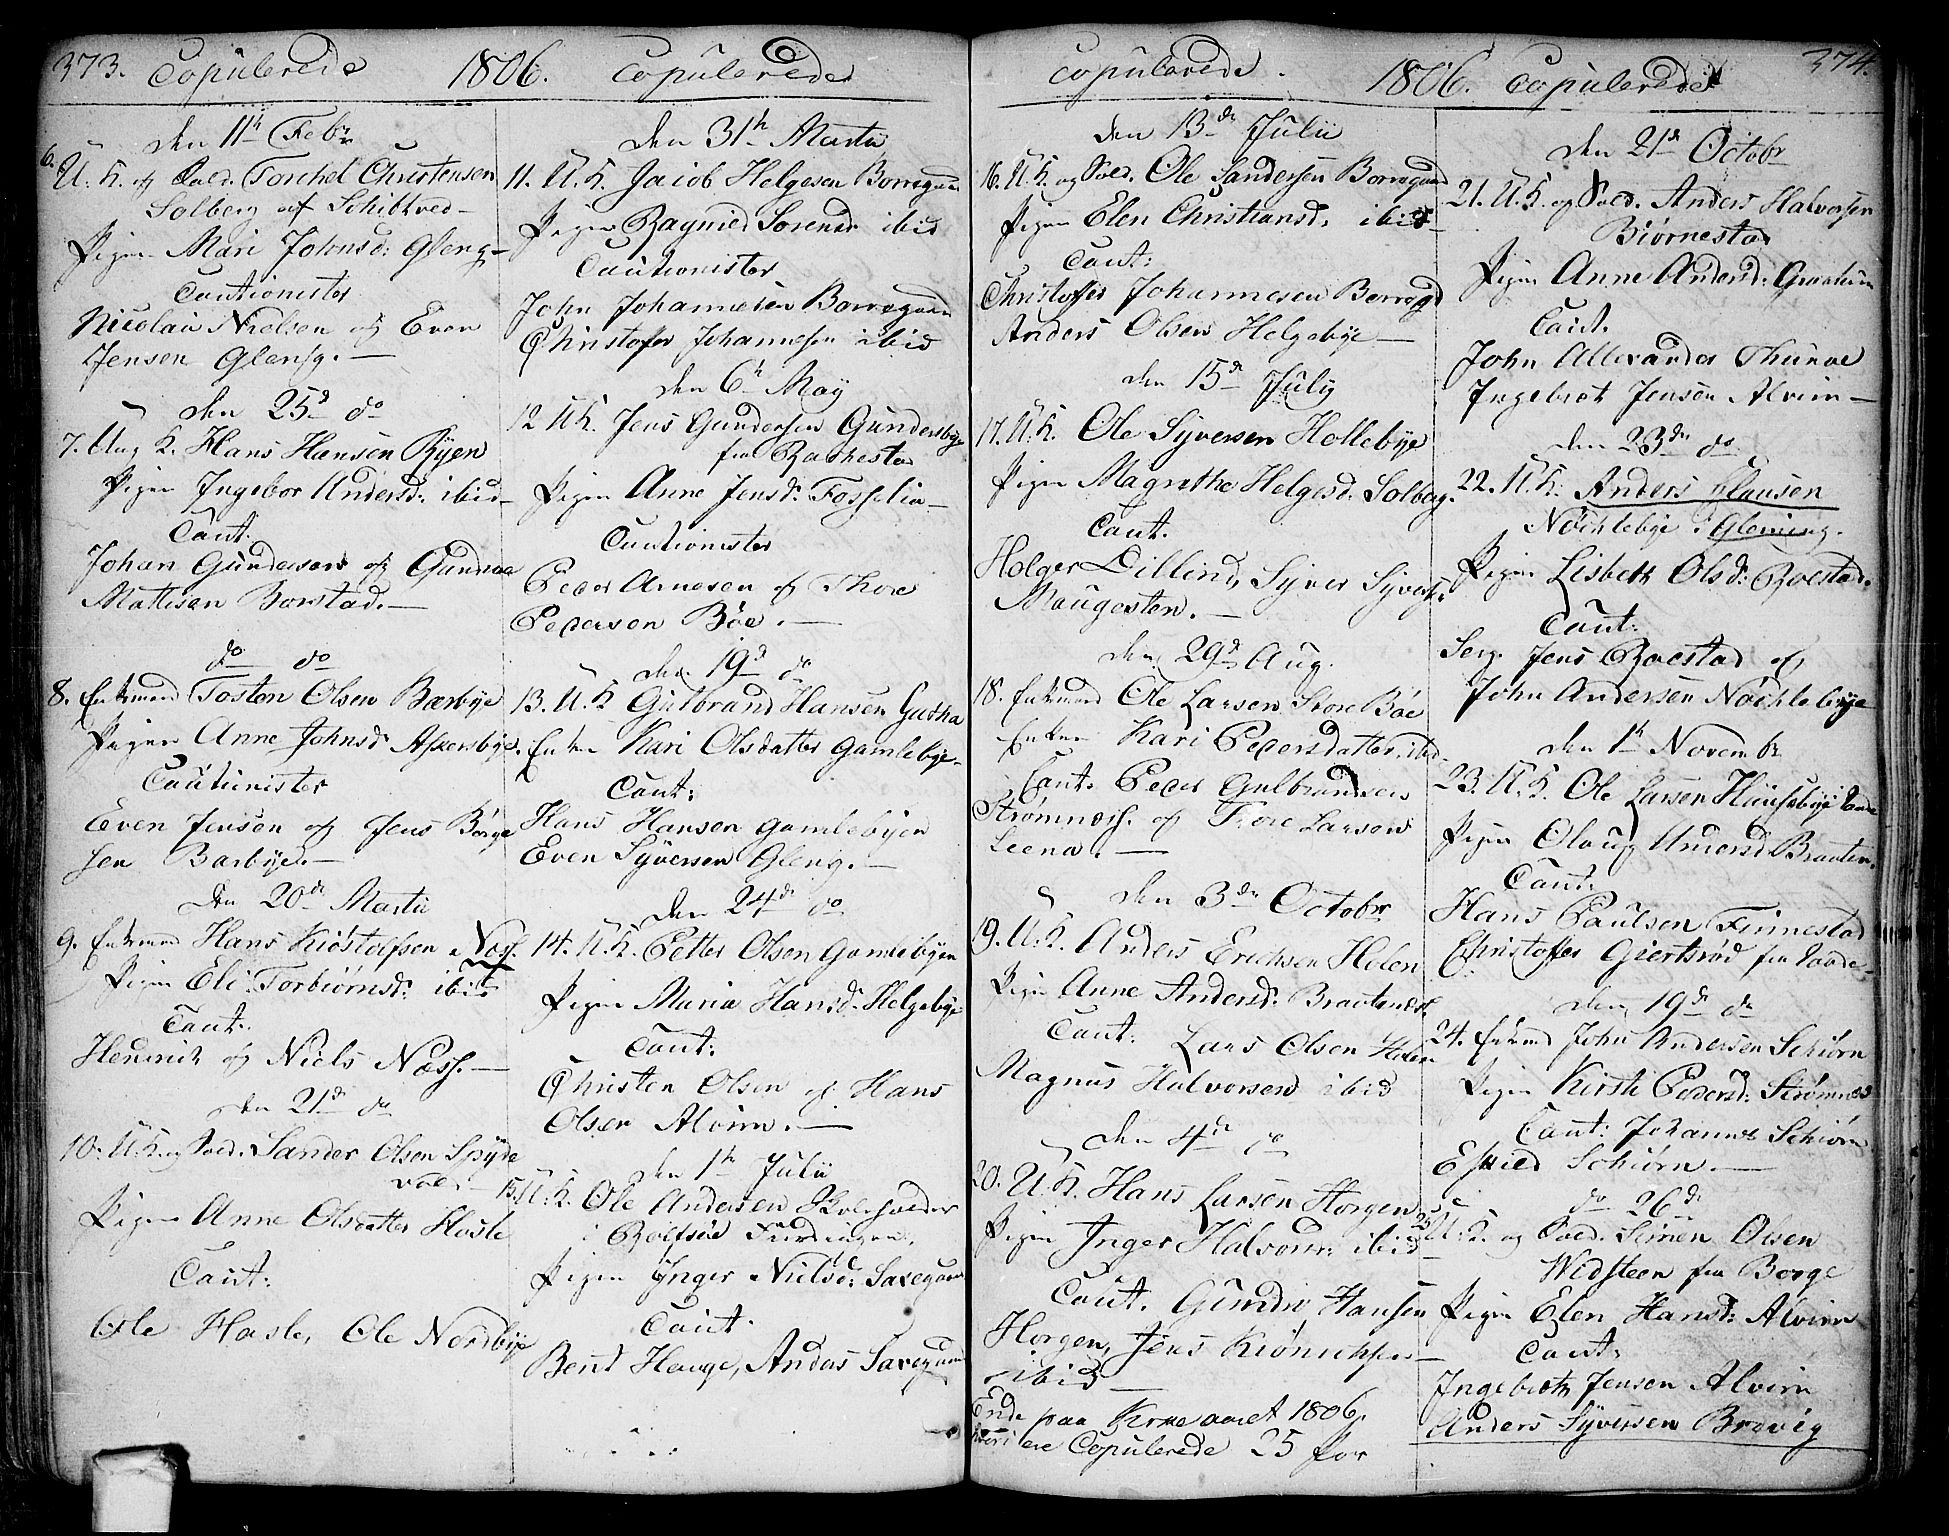 373. Copulerede 1806. Copulerede
den 11th Febr
6. U: K. og Sold. Torchel Christensen
Solberg af Schibtved
Pigen Mari Johnsd: Gleng
Cautionister
Nicolai Nielsen og Even
Jensen Glensg.
den 25d do
7. Ung K. Hans Hansen Ryen
Pigen Ingebor Andersd: ibid
Caut.
Johan Gundersen og Gunder
Mattisen Borstad.
do do
8. Enkemand Tosten Olsen Barbye
Pigen Anne Johnsd: Askersbye.
Cautionister
Even Jensen og Jens Børge
sen Barbye.
den 20de Martii
9. Enkemand Hans Kiøstolfsen Næss.
Pigen Eli Torbiørnsd: ibid
Caut.
Hendrich og Niels Næss.
den 21de do
10. U: K. og Sold. Sander Olsen Spyde
vold
Pigen Anne Olsdatter Hosle
Caut:
Ole Hasle, Ole Nordbye
den 31th Martii
11. U. K. Jacob Helgesen Borregaard
Pigen Ragnild Sorensd ibid
Cautionister
John Johannesen Borregaard
Christofer Johannesen ibid
den 6th May
12 U K. Jens Gundersen Gundersbye
fra Rackestad
Pigen Anne Jensd: Fosselia
Cautionister
Peder Arnesen og Thore
Pedersen Böe.
den 19d do
13. U. K Gulbrand Hansen Gutha
Enken Kari Olsdatter Gamlebye
Caut:
Hans Hansen Gamlebyen
Even Syversen Gleng.
den 24de do
14. U. K. Petter Olsen Gamlebyen
Pigen Maria Hansd: Helgebye
Caut:
Christen Olsen og Hans
Olsen Alvim.
den 1th Julii
15. U. K. Ole Andersen Skoleholder
i Rolfsøe Fierdingen,
Pigen Ynger Nielsd: Saxegaard
Caut.
Bent Hauge, Andas Saxegaard
Copulerede. 1806. Copulerede 374.
den 13de Julii
16. U. K. og Sold. Ole Sandersen Borregaard
Pigen Elen Christiansd: ibid
Caut:
Christoffer Johannesen Borregd
Anders Olsen Helgebye
den 15de July
17. U. K. Ole Syversen Hollebye
Pigen Magrethe Helgesd. Solberg.
Caut.
Holger Dillind, Syver Syvers:
Maugesten.
den 29de Aug.
18. Enkemand Ole Larsen Store Böe
Enken Kari Pedersdatter ibid
Caut. Peder Gulbrandsen
Strømness. og Tore Larsen
Leena.
den 3de Octobr
19. U. K. Anders Erichsen Holen
Pigen Anne Andersd: Brautness
Caut: Lars Olsen Holen
Magnus Halvorsen ibid
den 4de do
20. U. K. Hans Larsen Horgen
Pigen Inger Halvorsd: ibid
Caut. Gunder Hansen
Horgen, Jens
ibid
Ende paa Kirkeaaret 1806,
hvori ere Copulerede 25 Par
den 21de Octobr
21. U. K. og Sold. Anders Halvorsen
Biørnestad
Pigen Anne Andersd: Graatum
Caut.
John Allexander Thunoe
Ingebret Jensen Alvim
den 23de do
22. U. K. Anders Clausen
Nöchlebye i Glemmg.
Pigen Lisbeth Olsd: Roestad.
Caut:
Serg. Jens Roestad og
John Andersen Nöchlebye
den 1th Novembr
23. U. K. Ole Larsen Haugsbye
Pigen Olaug Andersd Braaten.
Caut:
Hans Paulsen Finnestad
Christoffer Giertsrød fra Raade
den 19de do
24. Enkemand John Andersen Schiørn
Pigen Kirsti Pedersd: Strømnes
Caut: Johannes Schiørn
Eskild Schiørn.
do 26de
25. U. K. og Sold. Simen Olsen
Widsteen fra Borge
Pigen Elen Hansd: Alvim
Caut:
Ingebreth Jensen Alvim
Anders Syversen Brevig